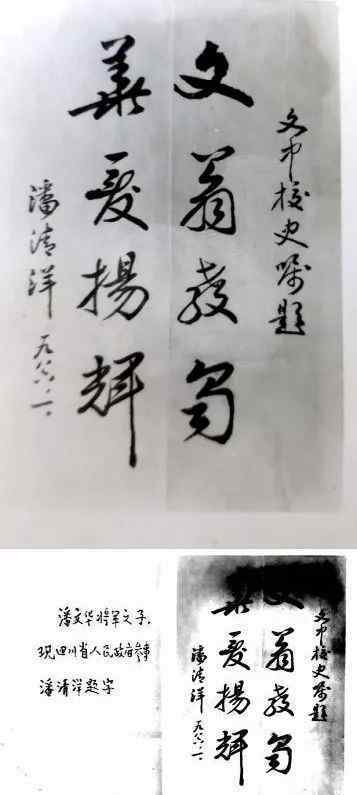 文中校史嘱题
文翁教蜀
華夏揚輝
潘清洋 一九八六.一.
潘文华将军之子,
现四川省人民政府参事
潘清洋题字
文中校史嘱题
文翁教蜀
華夏揚輝
潘清洋 一九八六.一.